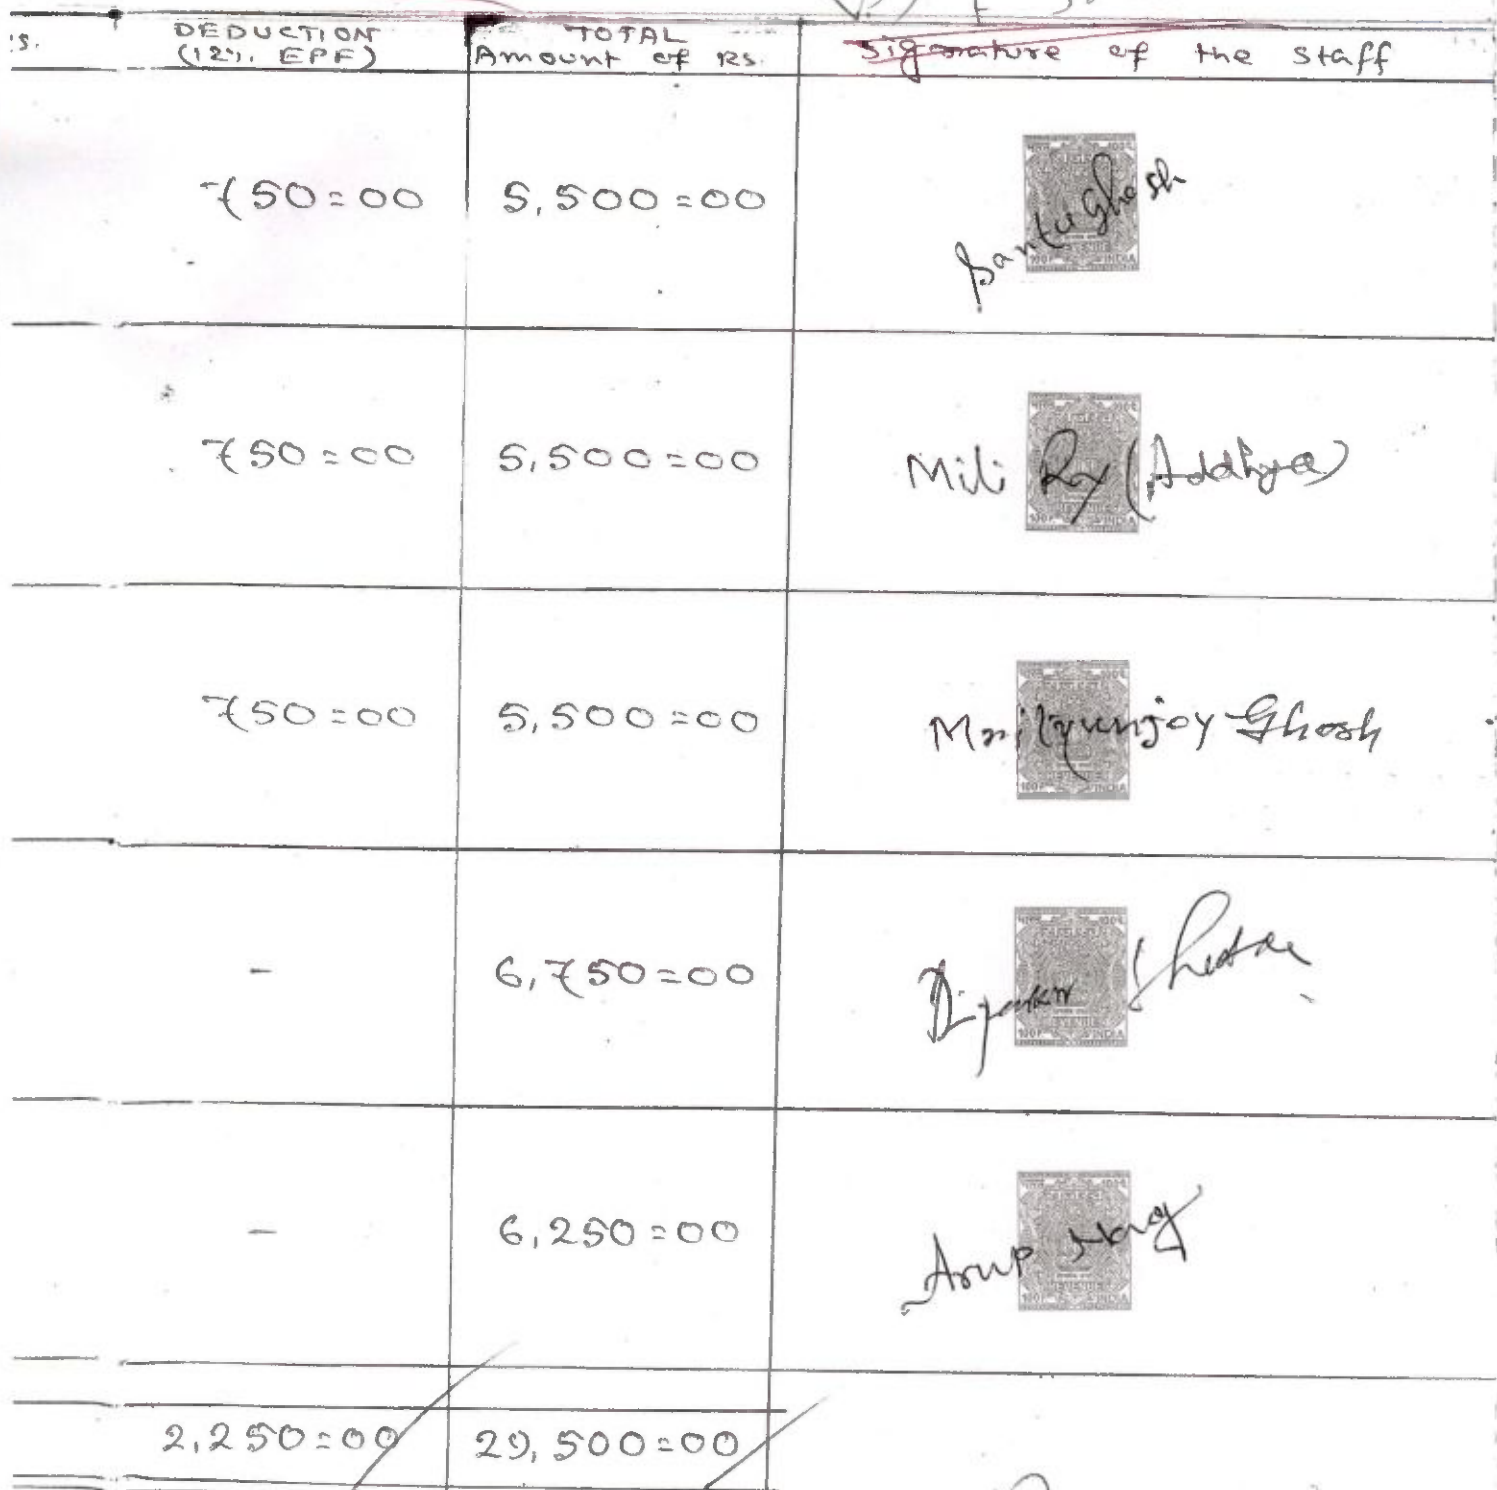 DEDUCTION
(12%. EPF)
TOTAL
Amount of Rs.
Signature of the staff
750=00 5,500=00 Santu Ghosh
750=00 5,500=00 Mili Roy (Addhya)
750=00 5,500=00 Mrityunjoy Ghosh
- 6,750=00
- 6,250=00 Arup
2,250=00 29,500=00